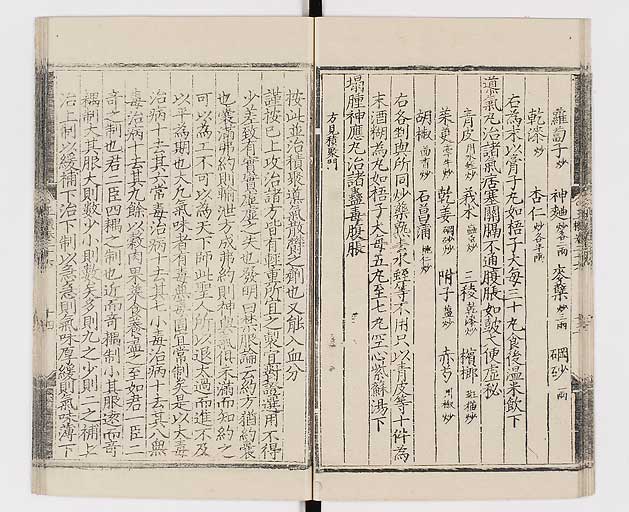 蘿蔔子炒 神麯炒各二兩 麥蘖炒二兩 硇砂一兩
乾漆炒 杏仁炒各半兩
右為末以膏子丸如梧子大每三十丸食後温米飲下
塡氣丸治諸氣痞塞關膈不通腹脹如鼓大便虛秘
青皮 莪朮 三稜乾漆炒 檳榔斑猫炒
茱萸牽牛炒 乾姜硼砂炒 附子盬炒 赤芍川椒炒
胡椒茴香炒 石菖蒲桃仁炒
右各剉血所同炒藥熏去水蛭等不用只以青皮等十件為
末酒糊為丸如梧子大每五丸至七丸空心紫蘇湯下
塌腫神應丸治諸蠱毒腹脹
方見積聚門
按此並治積聚滯氣散腫之劑也又能入血分
謹按已上攻治諸方皆有輕重所宜之製宜對證選用不得
少差致有實實虛虛之失也發明曰禁服論云約方猶約囊
也囊滿弗約則輸泄方成弗約則神與氣俱未滿而知約之
可以為工不可以為天下師此聖人所以退太過而進不及
以平為期也大凡氣味者有毒無毒固宜常制矣是以大毒
治病十去其六常毒治病十去其七小毒治病十去其八無
毒治病十去其九餘以穀肉果菜食養盡之至如君一臣二
奇之制也君二臣四耦之制也近而奇耦制小其服遠而奇
耦制大其服大則數少小則數多多則九之少則二之補上
治上制以緩補下治下制以急急則氣味厚緩則氣味薄下